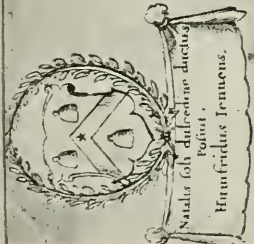 Natalis soli dulcedine ductus
Posuit.
Humfridus Jennens.